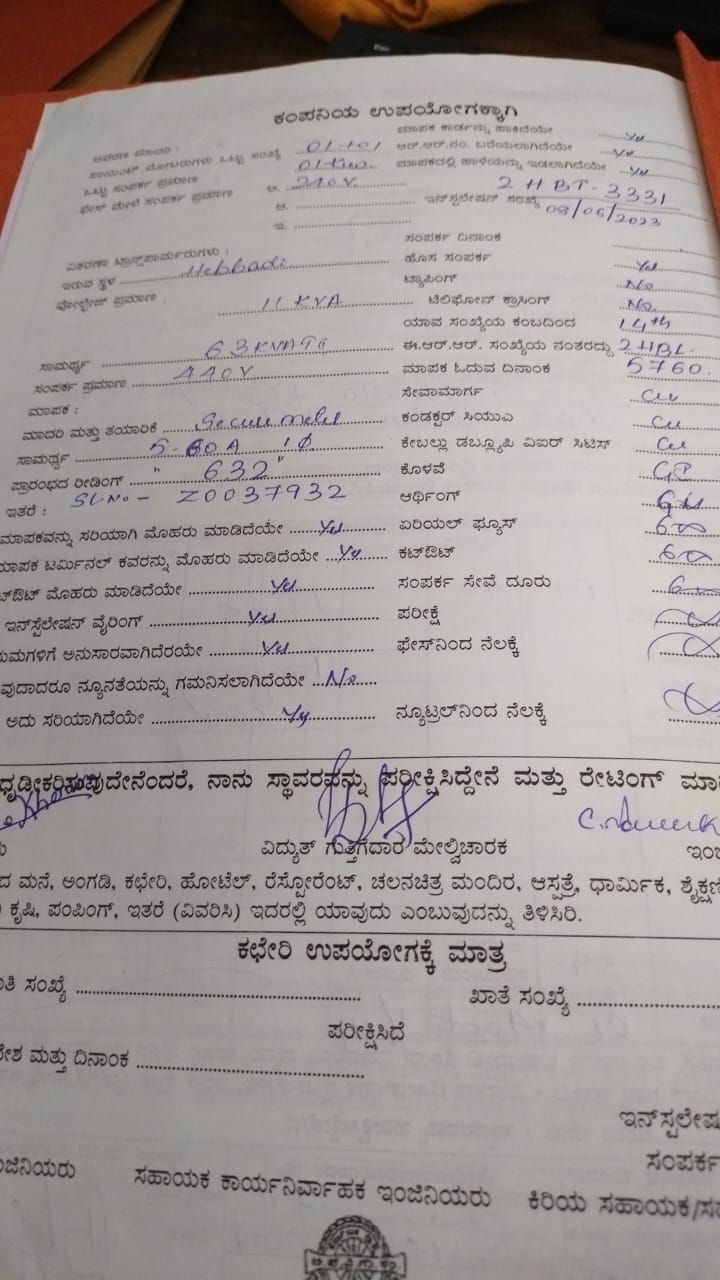 ಕಂಪನಿಯ ಉಪಯೋಗಕ್ಕಾಗಿ
ಮಾಪಕ ಕಾರ್ಡನ್ನು ಹಾಕಿದೆಯೇ Yes
ಆವರಣ ಮಾದರಿ :
ಪಾಯಿಂಟ್ ಮೋಟರುಗಳು ಒಟ್ಟು ಸಂಖ್ಯೆ ಆರ್.ಆರ್.ನಂ. ಬರೆಯಲಾಗಿದೆಯೇ Yes
ಒಟ್ಟು ಸಂಪರ್ಕ ಪ್ರಮಾಣ ಮಾಪಕದಲ್ಲಿ ಹಾಳೆಯನ್ನು ಇಡಲಾಗಿದೆಯೇ Yes
ಫೇಸ್ ಮೇಲೆ ಸಂಪರ್ಕ ಪ್ರಮಾಣ ಅ. 240V. 2 HBT-3331
ಆ. ಇನ್‌ಸ್ಟಲೇಷನ್ ಸಂಖ್ಯೆ 08/06/2023
ಇ.
ಸಂಪರ್ಕ ದಿನಾಂಕ
ವಿತರಣಾ ಟ್ರಾನ್ಸ್‌ಫಾರ್ಮರುಗಳು :
ಇರುವ ಸ್ಥಳ Hebbadi ಹೊಸ ಸಂಪರ್ಕ Yes
ಟ್ಯಾಪಿಂಗ್ No
ವೋಲ್ಟೇಜ್ ಪ್ರಮಾಣ : 11 KVA ಟೆಲಿಫೋನ್ ಕ್ರಾಸಿಂಗ್ No.
ಯಾವ ಸಂಖ್ಯೆಯ ಕಂಬದಿಂದ 14th
ಸಾಮರ್ಥ್ಯ 63KVATC ಈ.ಆರ್.ಆರ್. ಸಂಖ್ಯೆಯ ನಂತರದ್ದು 2HBL-
ಸಂಪರ್ಕ ಪ್ರಮಾಣ 440V ಮಾಪಕ ಓದುವ ದಿನಾಂಕ 5760.
ಮಾಪಕ : ಸೇವಾಮಾರ್ಗ cu
ಮಾದರಿ ಮತ್ತು ತಯಾರಿಕೆ Secure ಕಂಡಕ್ಟರ್ ಸಿಯುಎ cu
ಸಾಮರ್ಥ್ಯ 5-60A 1Φ ಕೇಬಲ್ಲು ಡಬ್ಲ್ಯೂಪಿ ವಿಐರ್ ಸಿಟಿಸ್ cu
ಪ್ರಾರಂಭದ ರೀಡಿಂಗ್ " 632" ಕೊಳವೆ GP
ಇತರೆ : SL.No- Z0037932 ಆರ್ಥಿಂಗ್
ಮಾಪಕವನ್ನು ಸರಿಯಾಗಿ ಮೊಹರು ಮಾಡಿದೆಯೇ Yes ಏರಿಯಲ್ ಫ್ಯೂಸ್
ಮಾಪಕ ಟರ್ಮಿನಲ್ ಕವರನ್ನು ಮೊಹರು ಮಾಡಿದೆಯೇ Yes ಕಟ್‌ಔಟ್
ಟ್‌ಔಟ್ ಮೊಹರು ಮಾಡಿದೆಯೇ Yes ಸಂಪರ್ಕ ಸೇವೆ ದೂರು
ಇನ್‌ಸ್ಟೆಲೇಷನ್ ವೈರಿಂಗ್ Yes ಪರೀಕ್ಷೆ
ಯಮಗಳಿಗೆ ಅನುಸಾರವಾಗಿದೆರಯೇ Yes ಫೇಸ್‌ನಿಂದ ನೆಲಕ್ಕೆ
ವುದಾದರೂ ನ್ಯೂನತೆಯನ್ನು ಗಮನಿಸಲಾಗಿದೆಯೇ No
ಅದು ಸರಿಯಾಗಿದೆಯೇ Yes ನ್ಯೂಟ್ರಲ್‌ನಿಂದ ನೆಲಕ್ಕೆ
ಧೃಢೀಕರಿಸುವುದೇನೆಂದರೆ, ನಾನು ಸ್ಥಾವರವನ್ನು ಪರೀಕ್ಷಿಸಿದ್ದೇನೆ ಮತ್ತು ರೇಟಿಂಗ್ ಮಾ
ವಿದ್ಯುತ್ ಗುತ್ತಿಗೆದಾರ ಮೇಲ್ವಿಚಾರಕ ಇಂ
ದ ಮನೆ, ಅಂಗಡಿ, ಕಛೇರಿ, ಹೋಟೆಲ್, ರೆಸ್ಟೋರೆಂಟ್, ಚಲನಚಿತ್ರ ಮಂದಿರ, ಆಸ್ಪತ್ರೆ, ಧಾರ್ಮಿಕ, ಶೈಕ್ಷಣಿ
ಕೃಷಿ, ಪಂಪಿಂಗ್, ಇತರೆ (ವಿವರಿಸಿ) ಇದರಲ್ಲಿ ಯಾವುದು ಎಂಬುವುದನ್ನು ತಿಳಿಸಿರಿ.
ಕಛೇರಿ ಉಪಯೋಗಕ್ಕೆ ಮಾತ್ರ
ತಿ ಸಂಖ್ಯೆ ಖಾತೆ ಸಂಖ್ಯೆ
ಪರೀಕ್ಷಿಸಿದೆ
ೇಶ ಮತ್ತು ದಿನಾಂಕ
ಇನ್‌ಸ್ಟಲೇಷ
ಸಂಪರ್ಕ
ಂಜಿನಿಯರು ಸಹಾಯಕ ಕಾರ್ಯನಿರ್ವಾಹಕ ಇಂಜಿನಿಯರು ಕಿರಿಯ ಸಹಾಯಕ/ಸಹ